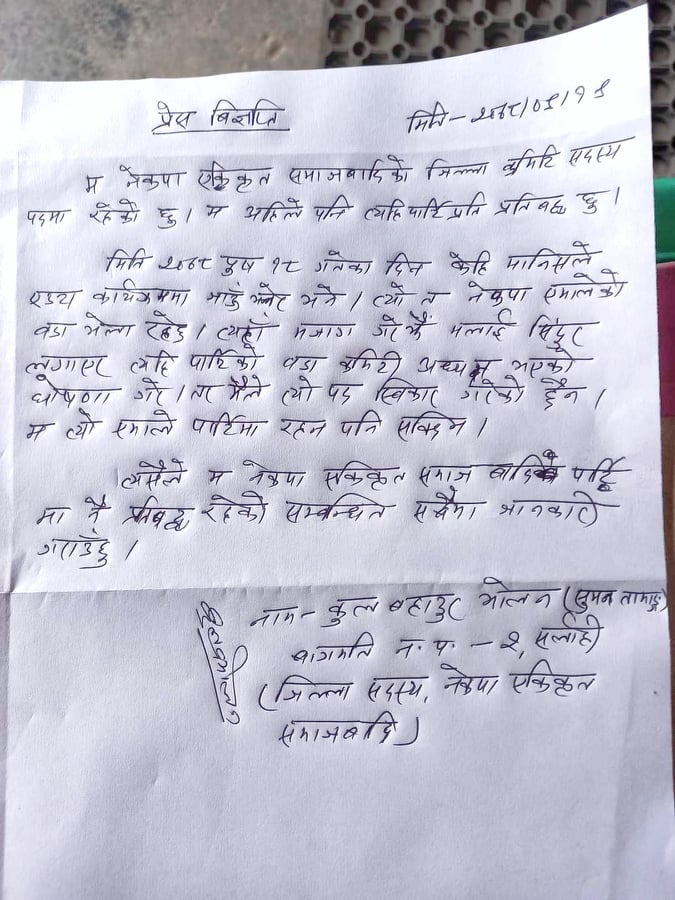 प्रेस बिज्ञप्ति
मिति - २०७८/०९/१९
म नेकपा एकिकृत समाजबादिको जिल्ला कमिटि सदस्य
पदमा रहेको छु। म अहिले पनि त्यहि पार्टिप्रति प्रतिबद्ध छु।
मिति २०७८ पुष १८ गतेका दिन केहि मानिसले
एउटा कार्यक्रममा जाउँ भनेर भने। त्यो त नेकपा एमालेको
वडा भेला रहेछ। त्यहाँ मजाग गरे झैँ मलाई सिंदुर
लगाएर त्यहि पार्टिको वडा कमिटी अध्यक्ष भएको
घोषणा गरे। तर मैले त्यो पद स्विकार गरेको छैन।
म त्यो एमाले पार्टिमा रहन पनि सक्दिन।
त्यसैले म नेकपा एकिकृत समाज बादि पार्टि
मा नै प्रतिबद्ध रहेको सम्बन्धित सबैमा जानकारी
गराउँछु।
नाम - कुल बहादुर मोलन (सुमन तामाङ)
बागमति न. पा. - २, सर्लाही
(जिल्ला सदस्य, नेकपा एकिकृत
समाजबादि)